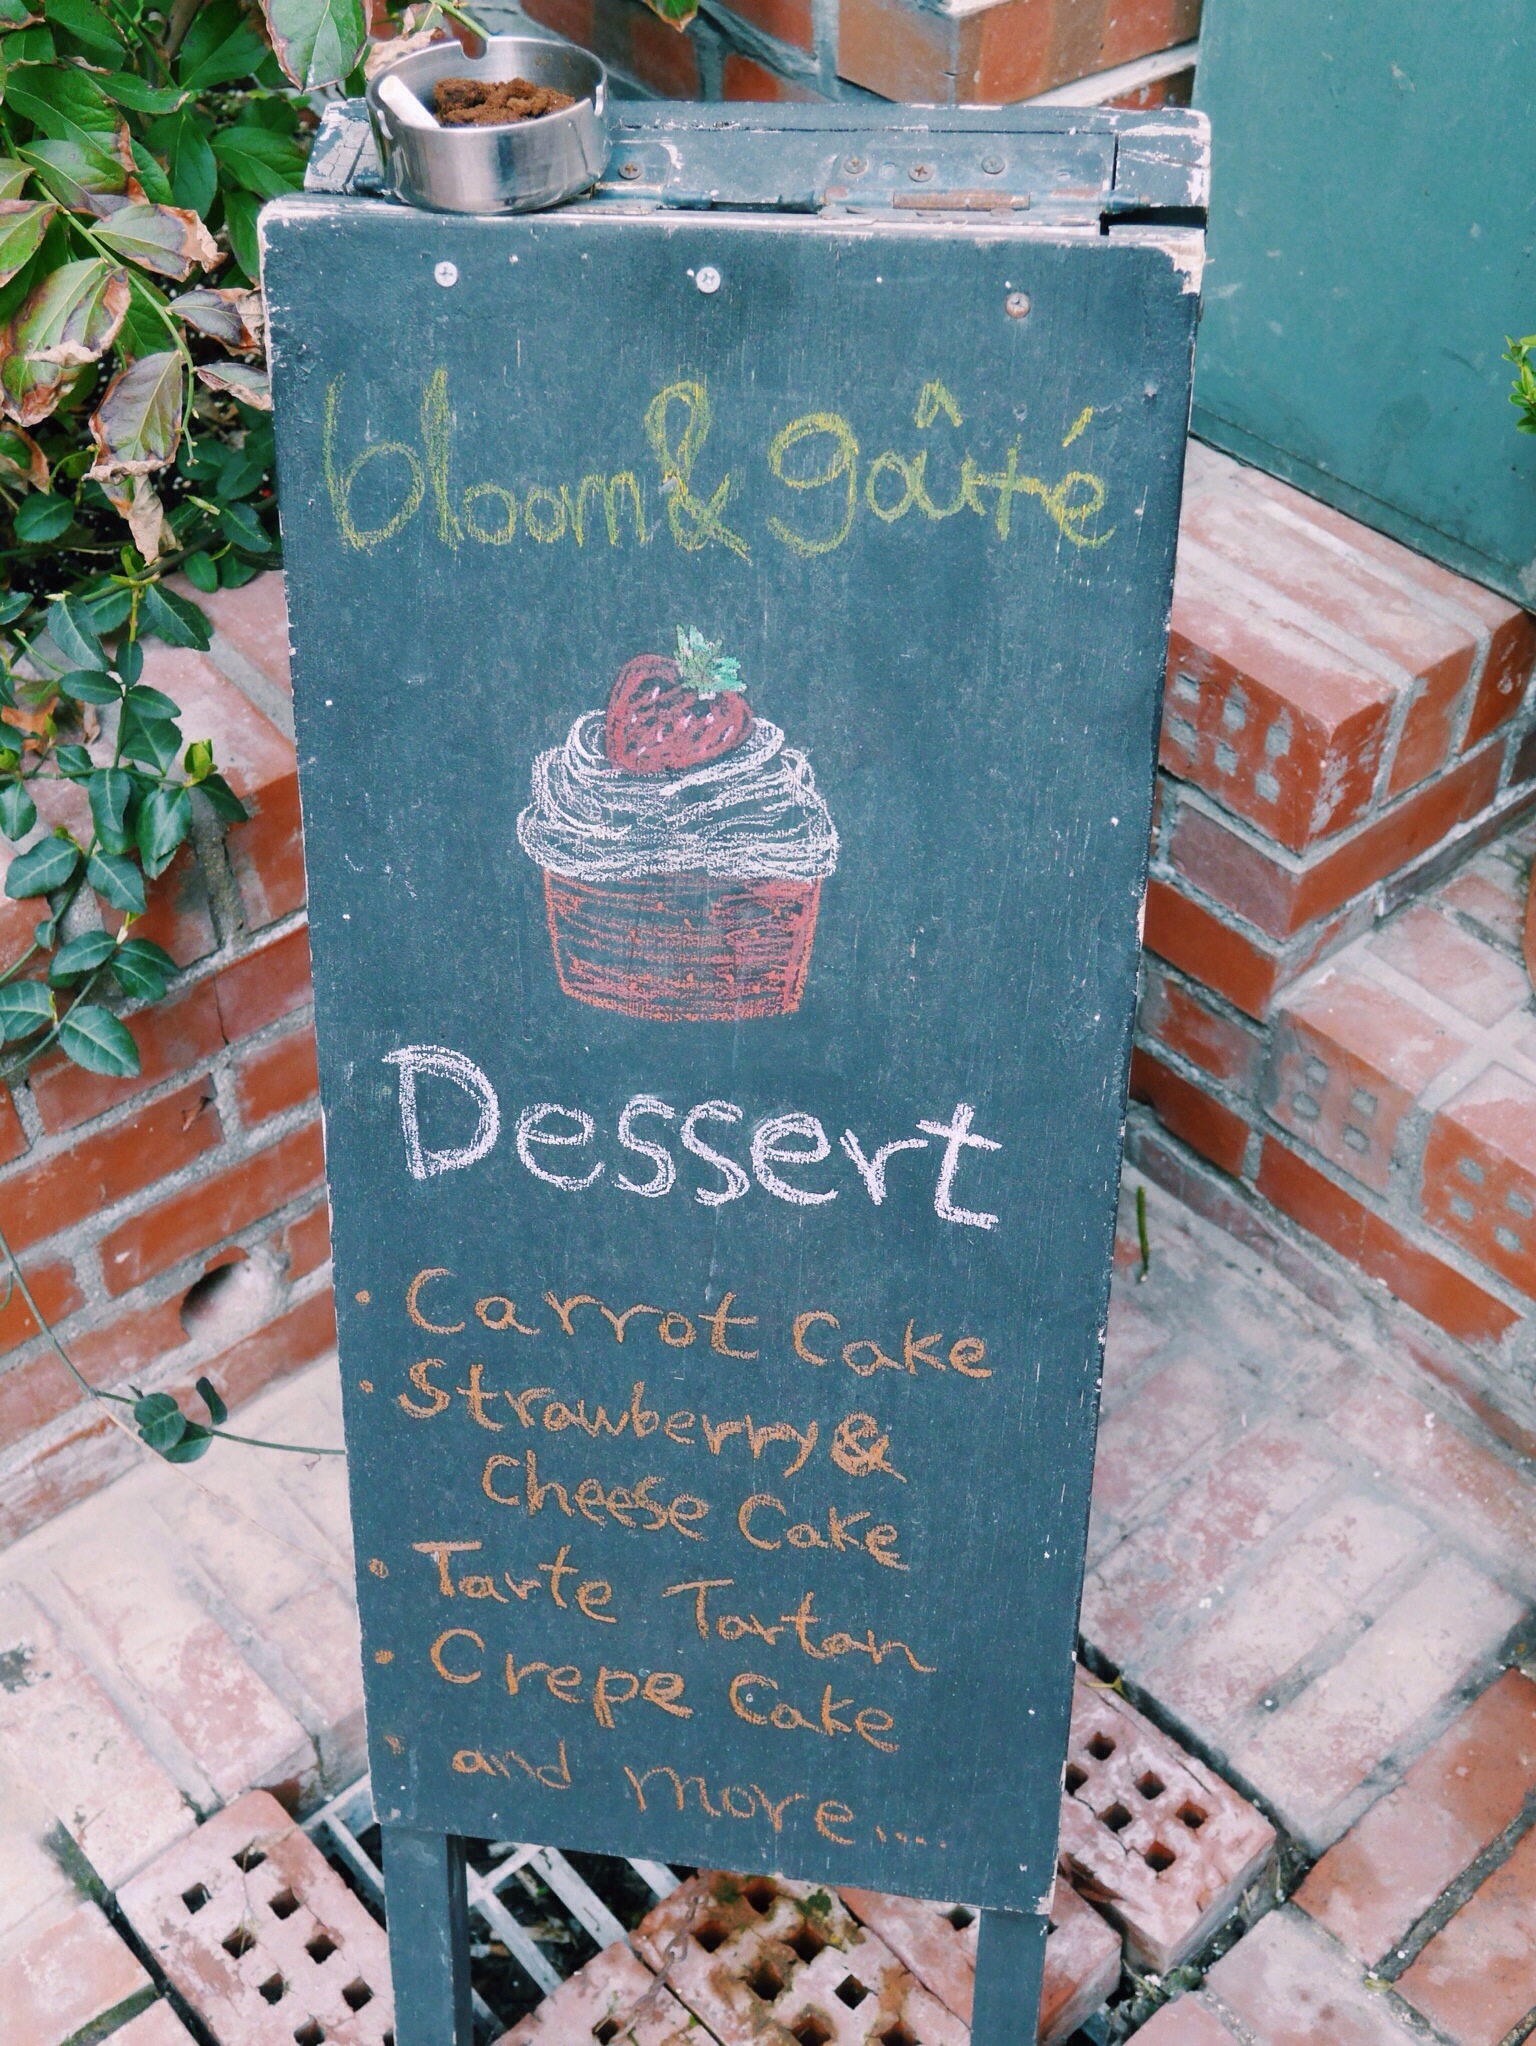 bloom & gâité
Dessert
· Carrot Cake
· Strawberry &
Cheese Cake
· Tarte Tartan
· Crepe Cake
· and more....